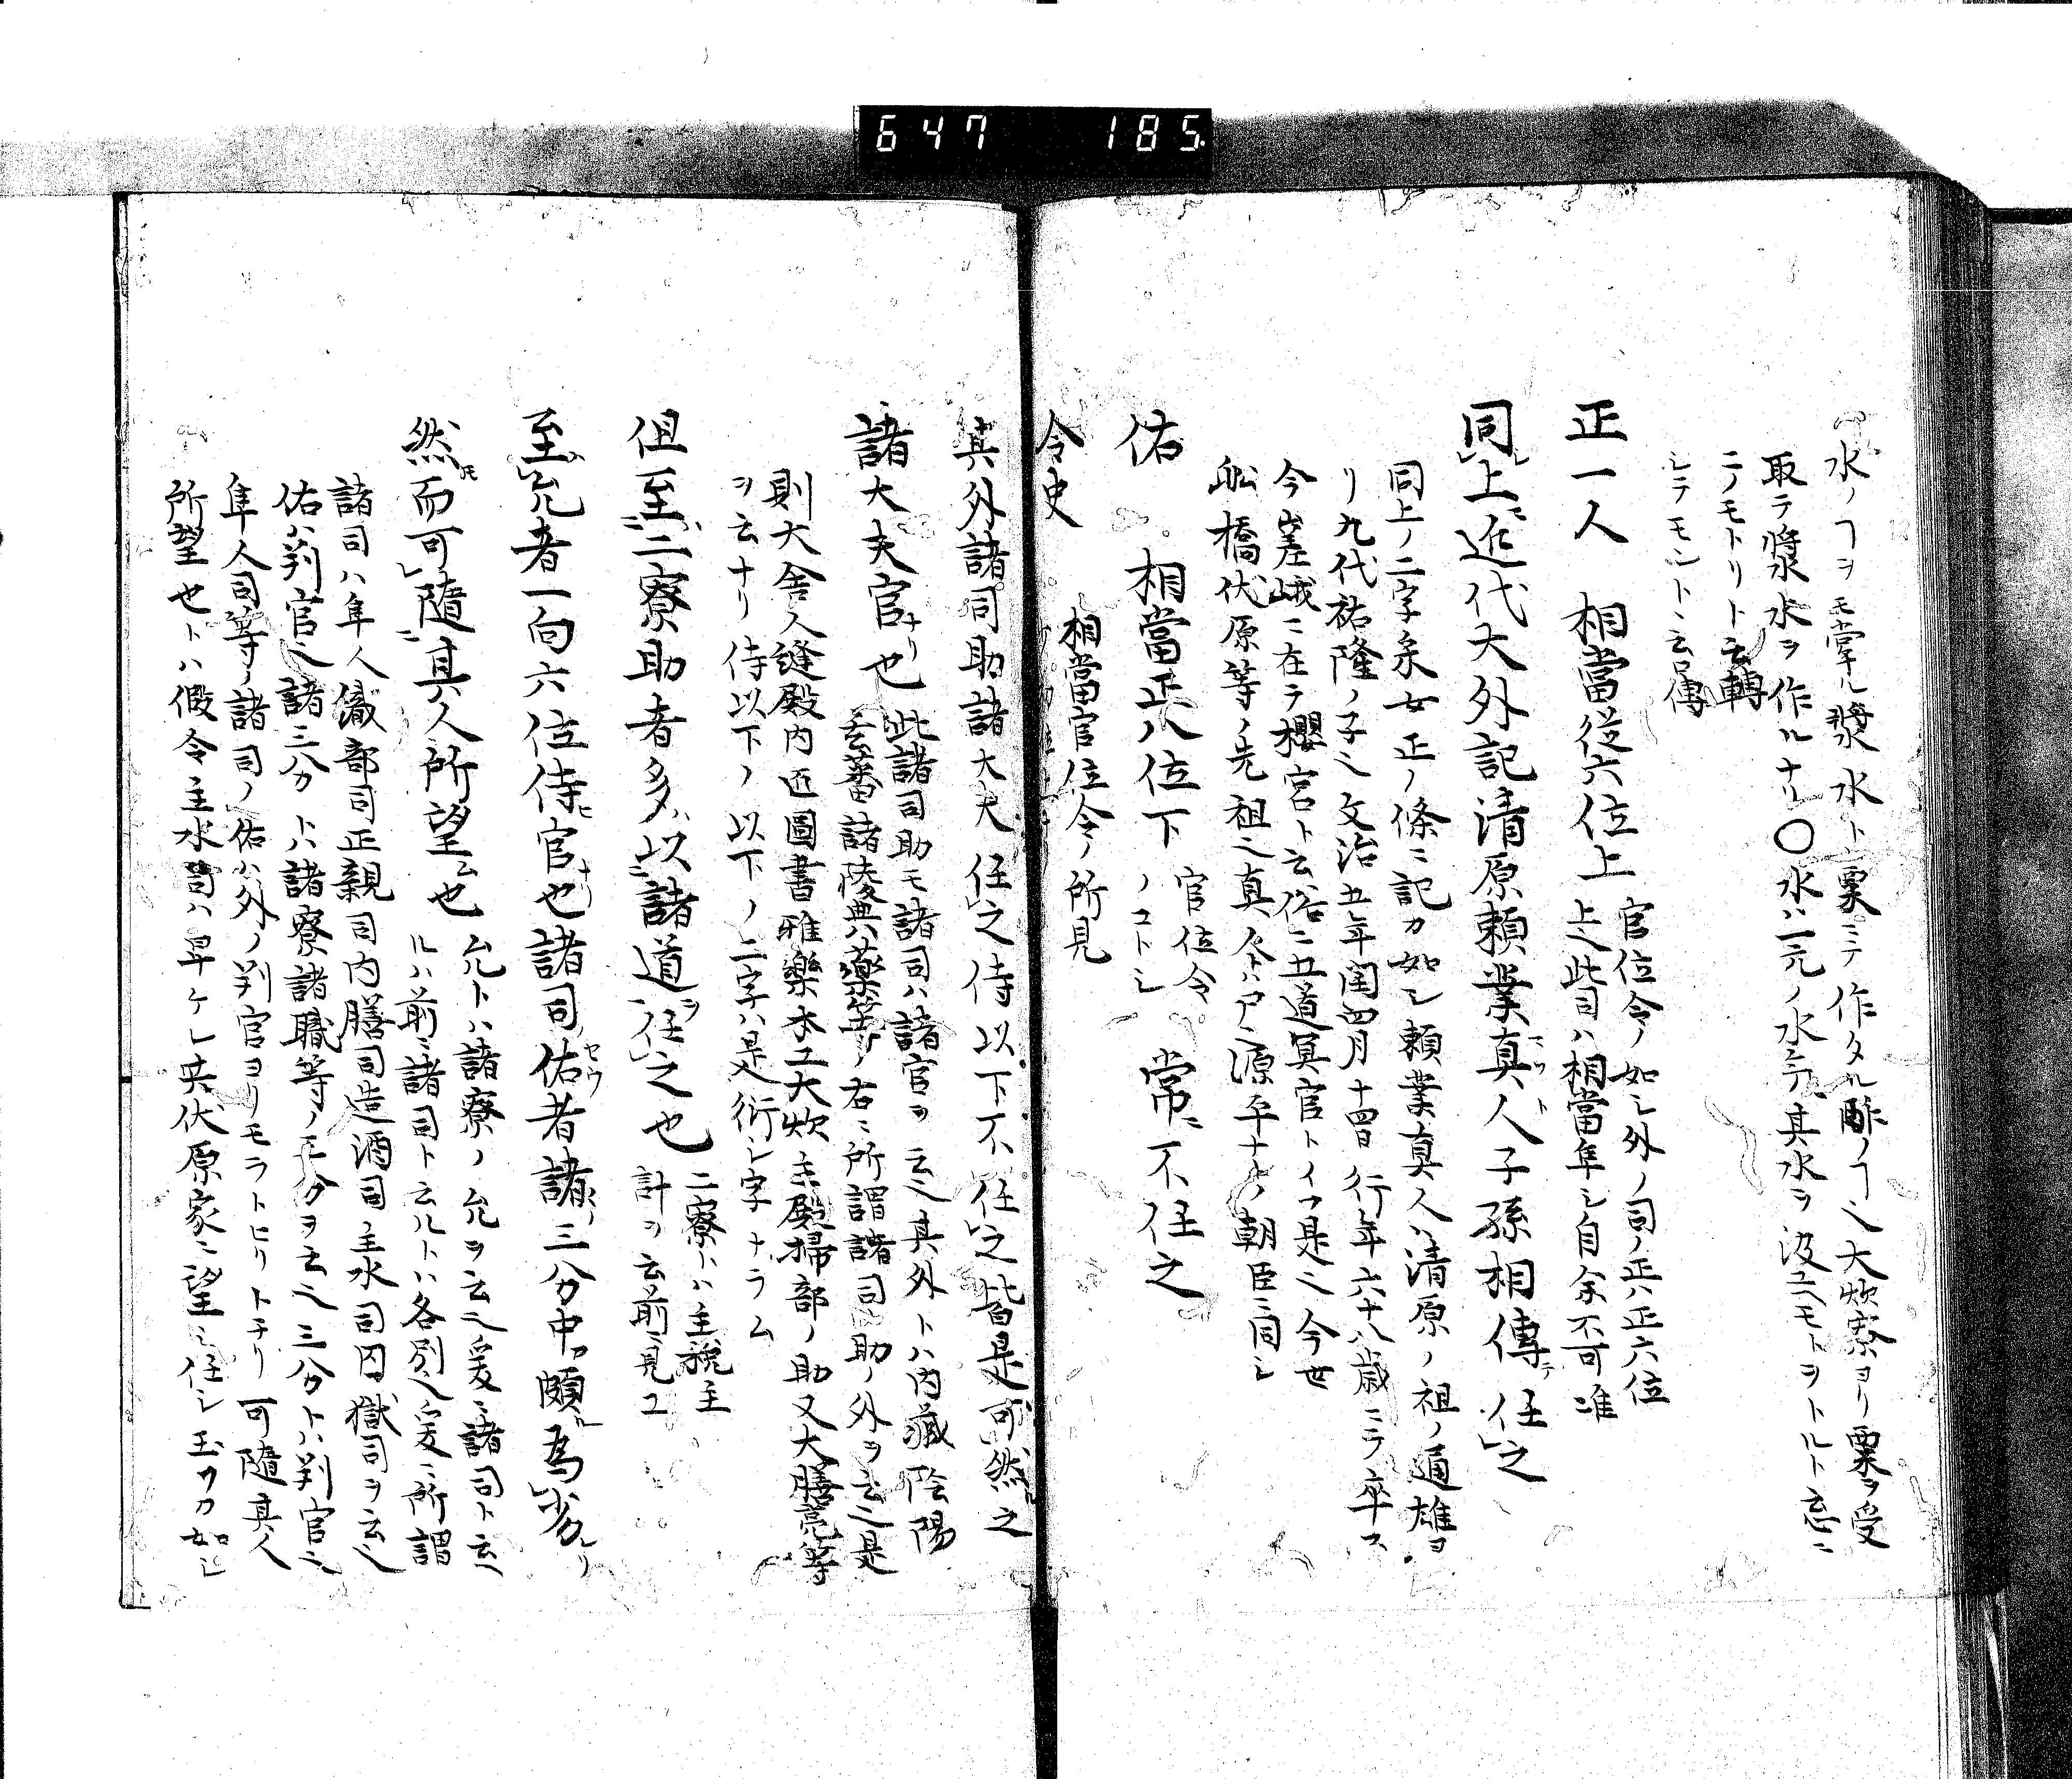 647 185
水ノヿヲモ掌ル漿水ト粟ニテ作タル酢ノヿ也大炊寮ヨリ粟ヲ受
取テ漿水ヲ作ルナリ〇水ハ一元ノ水ニテ其水ヲ汲
ニノモトリト云轉
シテモントト云傳
正一人 相當従六位上 官位令ノ如シ外ノ司ノ正ハ正六位
上也此司ハ相當隼シ自余不可准
同上近代大外記清原頼業真人子孫相傳任之
同上ノ二字采女正ノ條ニ記カ如シ頼業真人ハ清原ノ祖ノ通雄ヨ
リ九代祐隆ノ子也文治五年閏四月十四日行年六十八歳ニテ卒ス
今嵯峨ニ在テ櫻宮ト云俗ニ五道冥官トイフ是也今世
舩橋伏原等ノ先祖也真人ハ尸也源平ナトノ朝臣ニ同シ
佑 相當正八位下 官位令
ノコトシ 常不任之
令史 相當官位令ノ所見
其外諸司助諸大夫任之侍以下不任之皆是可然之
諸大夫官也 此諸司助モ諸司ハ諸官ヲ云也其外トハ内藏陰陽
玄蕃諸陵典藥等ノ右ニ所謂諸司助ノ外ヲ云也是
則大舍人縫殿内匠圖書雅樂木工大炊主殿掃部ノ助又大膳亮等
ヲ云ナリ侍以下ノ以下ノ二字ハ是衍シ字ナラム
但至二寮助者多以諸道任之也 二寮トハ主税主
計ヲ云前ニ見ユ
至允者一向六位侍官也諸司佑者諸三分中頗爲劣
然而可隨其人所望也 允トハ諸寮ノ允ヲ云也爰ニ諸司ト云
ルハ前ニ諸司ト云ルトハ各別也爰ニ所謂
諸司ハ隼人織部司正親司内膳司造酒司主水司囚獄司ヲ云也
佑ハ判官也諸三分トハ諸寮諸職等ノ三分ヲ云也三分トハ判官也
隼人司等ノ諸司ノ佑ハ外ノ判官ヨリモヲトヒリトナリ可隨其人
所望也トハ假令主水司ハ卑ケレ共伏原家ニ望ミ任シ玉フカ如シ